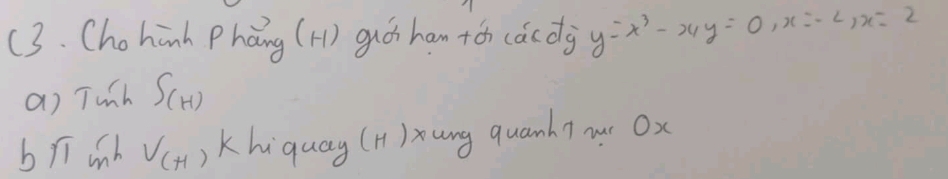 C3. Cho hình phẳng (H) giới hạn tới các đg y = x³ - x, y = 0, x = -2, x = 2
a) Tính S(H)
b) Tính V(H) khi quay (H) xung quanh trục Ox